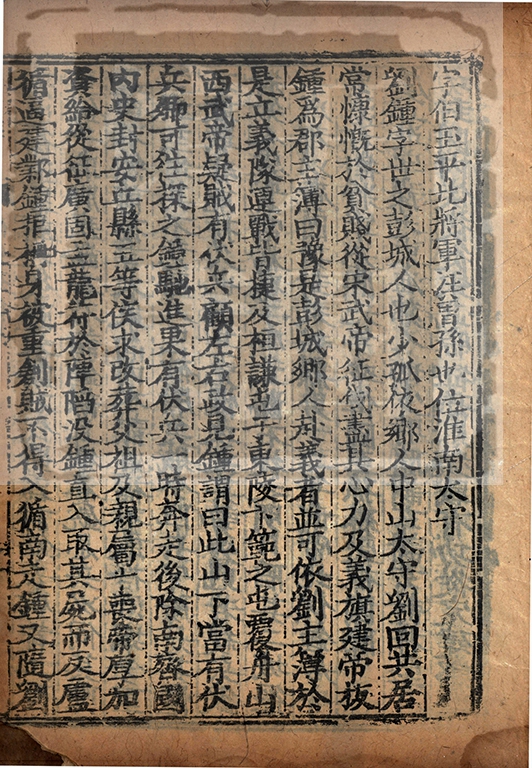 字伯玉平北將軍汪曾孫也位淮南太守
劉鍾字世之彭城人也少孤依鄉人中山太守劉回共居
常慷慨於貧賤從宋武帝征伐盡其心力及義旗建帝板
鍾爲郡主簿曰豫是彭城鄉人赴義者並可依劉主簿於
是立義隊連戰皆捷及桓謙屯于東陵卞範之屯覆舟山
西武帝疑賊有伏兵顧左右政見鍾謂曰此山下當有伏
兵卿可往探之鍾馳進果有伏兵一時奔走後除南齊國
內史封安丘縣五等侯求改葬父祖及親屬十喪帝厚加
資給從征廣固孟龍符於陣陷沒鍾直入取其屍而反盧
循逼建鄴鍾拒柵身被重創賊不得入循南走鍾又隨劉